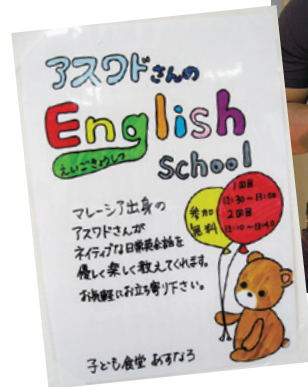 アスワドさんの
English
えいごきょうしつ
School
マレーシア出身の
アスワドさんが
ネイティブな日常英会話を
優しく楽しく教えてくれます。
お気軽にお立ち寄り下さい。
参加
無料
1回目
12:30～13:00
2回目
13:10～13:40
子ども食堂 あすなろ